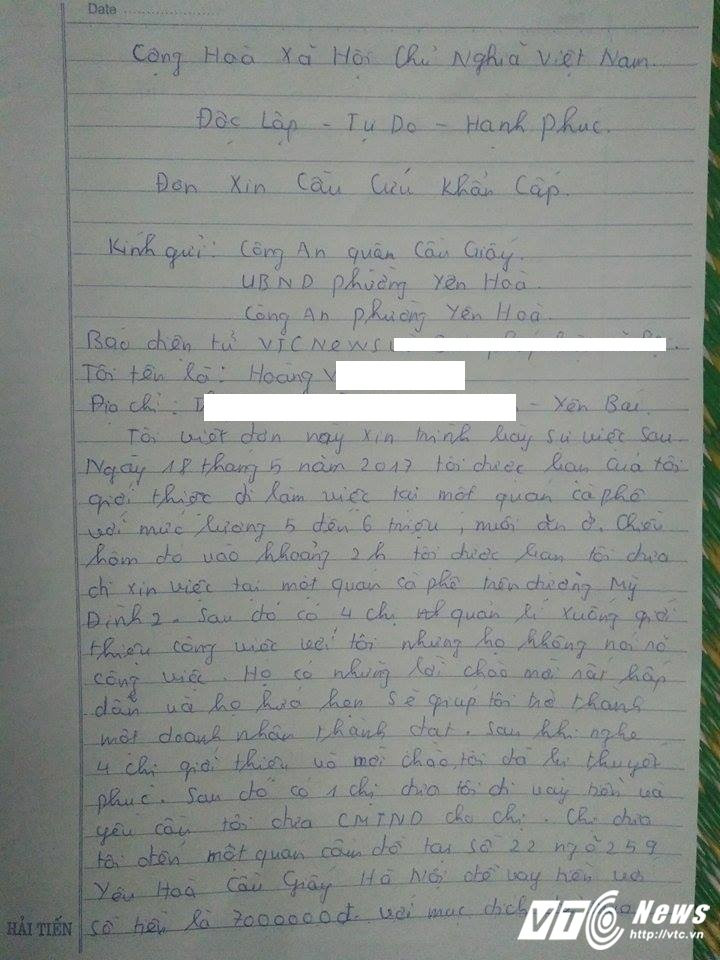 Date
Cộng Hoà Xã Hội Chủ Nghĩa Việt Nam.
Độc Lập - Tự Do - Hạnh Phúc.
Đơn Xin Cầu Cứu Khẩn Cấp.
Kính gửi: Công An quận Cầu Giấy.
UBND phường Yên Hoà.
Công An phường Yên Hoà.
Báo điện tử VTC News
Tôi tên là: Hoàng V
Địa chỉ: - Yên Bái.
Tôi viết đơn này xin trình bày sự việc sau.
Ngày 18 tháng 5 năm 2017 tôi được bạn của tôi
giới thiệu đi làm việc tại một quán cà phê
với mức lương 5 đến 6 triệu, nuôi ăn ở. Chiều
hôm đó vào khoảng 2h tôi được bạn tôi đưa
đi xin việc tại một quán cà phê trên đường Mỹ
Đình 2. Sau đó có 4 chị quản lí xuống giới
thiệu công việc với tôi nhưng họ không nói rõ
công việc. Họ có những lời chào mời rất hấp
dẫn và họ hứa hẹn sẽ giúp tôi trở thành
một doanh nhân thành đạt. Sau khi nghe
4 chị giới thiệu và mời chào, tôi đã bị thuyết
phục. Sau đó có 1 chị đưa tôi đi vay tiền và
yêu cầu tôi đưa CMTND cho chị. Chị đưa
tôi đến một quán cầm đồ tại số 22 ngõ 259
Yên Hoà Cầu Giấy Hà Nội để vay tiền với
số tiền là 7000000đ. với mục đích
HẢI TIẾN
VTC News
http://vtc.vn